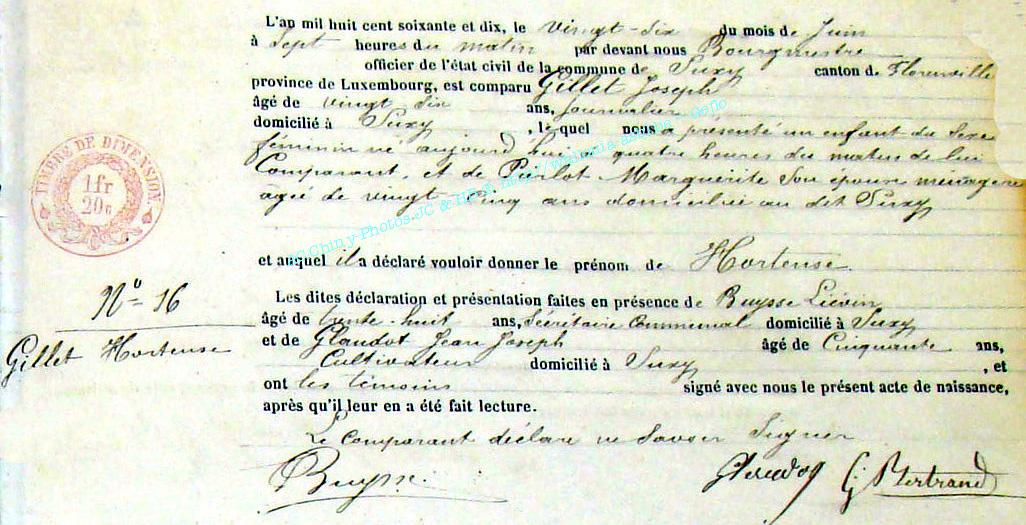 L'an mil huit cent soixante et dix, le vingt-six du mois de Juin
à Sept heures du matin par devant nous Bourgmestre
officier de l'état civil de la commune de Suxy canton de Florenville
province de Luxembourg, est comparu Gillet Joseph
âgé de vingt six ans, journalier
domicilié à Suxy, lequel nous a présenté un enfant du sexe
féminin né aujourd'hui à quatre heures du matin de lui
Comparant, et de Pierlot Marguerite son épouse ménagère
âgée de vingt cinq ans domicilié au dit Suxy
et auquel il a déclaré vouloir donner le prénom de Hortense.
TIMBRE DE DIMENSION.
1 fr
20 c
No 16
Gillet Hortense
Les dites déclaration et présentation faites en présence de Buysse Liévin
âgé de trente-huit ans, Sécrétaire Communal domicilié à Suxy
et de Glaudot Jean Joseph âgé de Cinquante ans,
Cultivateur domicilié à Suxy, et
ont les témoins signé avec nous le présent acte de naissance,
après qu'il leur en a été fait lecture.
Le comparant déclare ne savoir signer
Buysse. Glaudot G Bertrand
Chiny-Photos-JC &